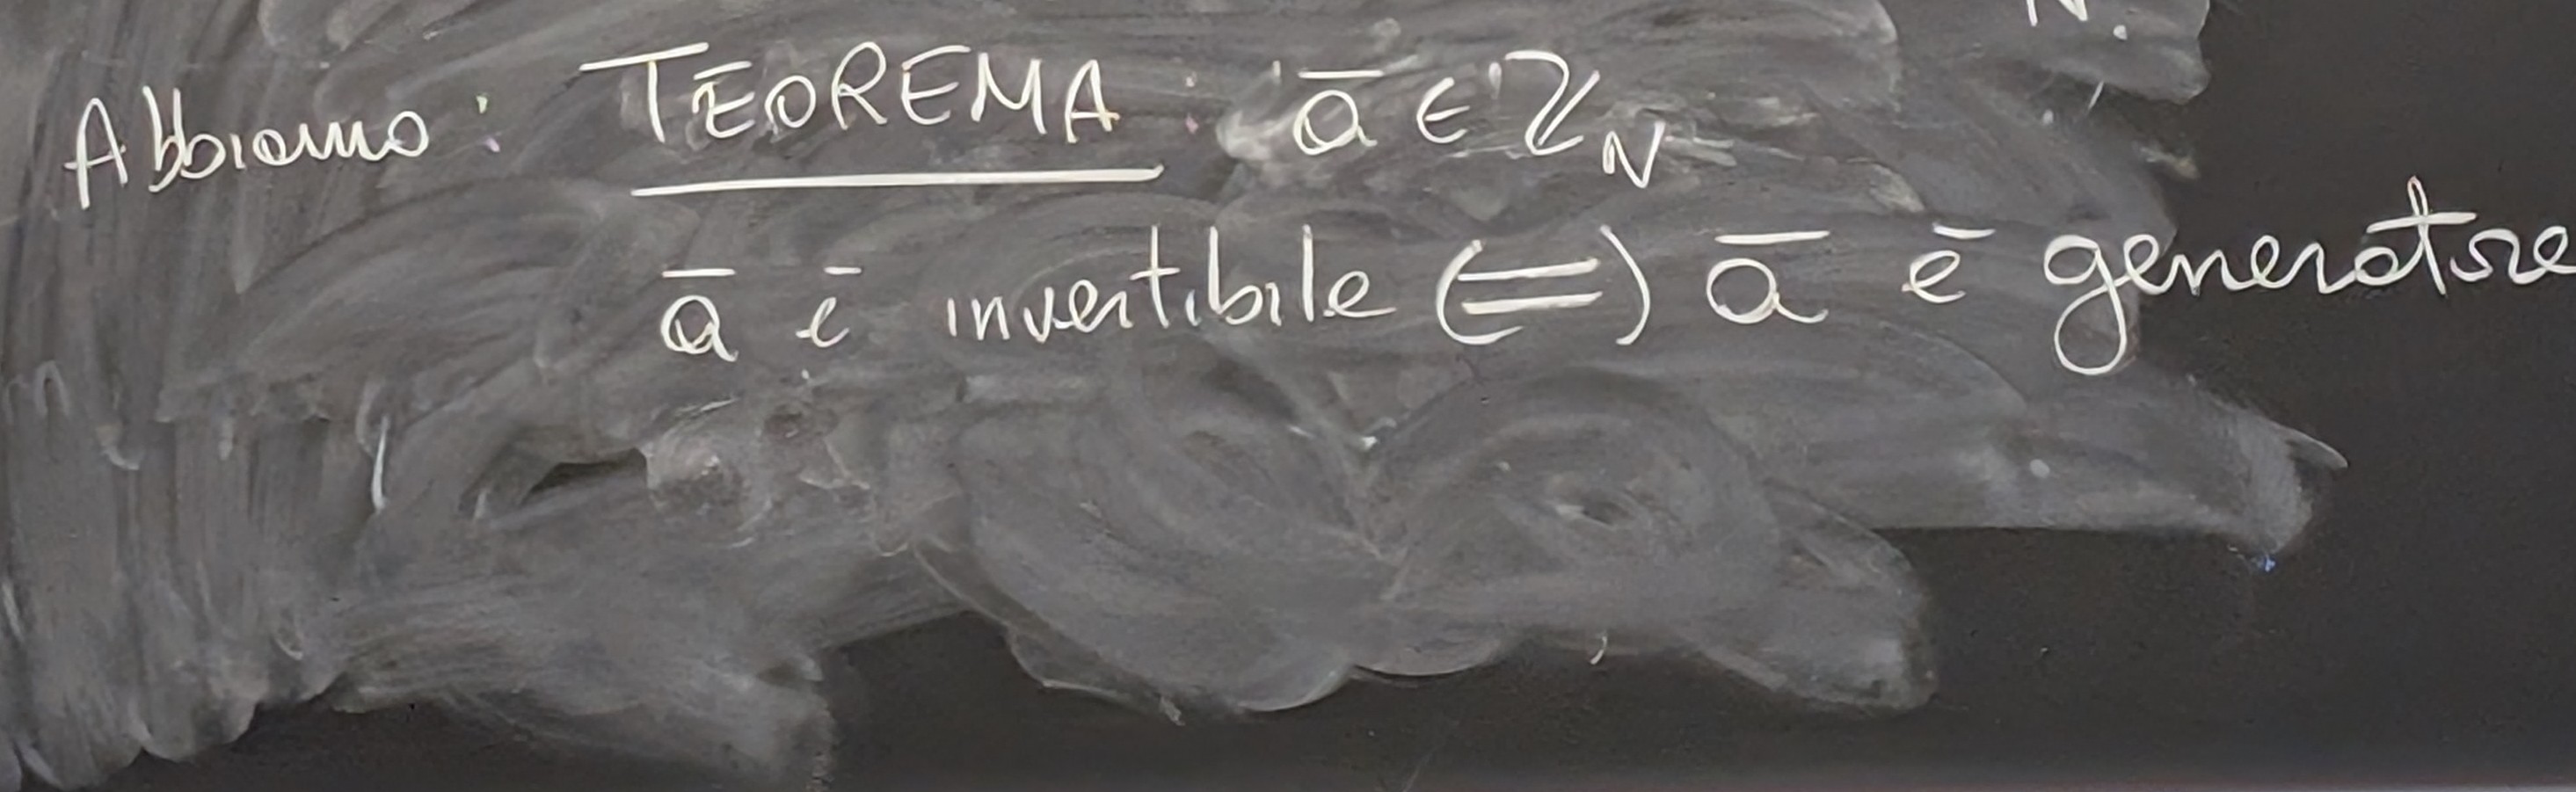 Abbiamo: TEOREMA: a̅ ∈ ℤ_N
a̅ è invertibile (=) a̅ è generatore